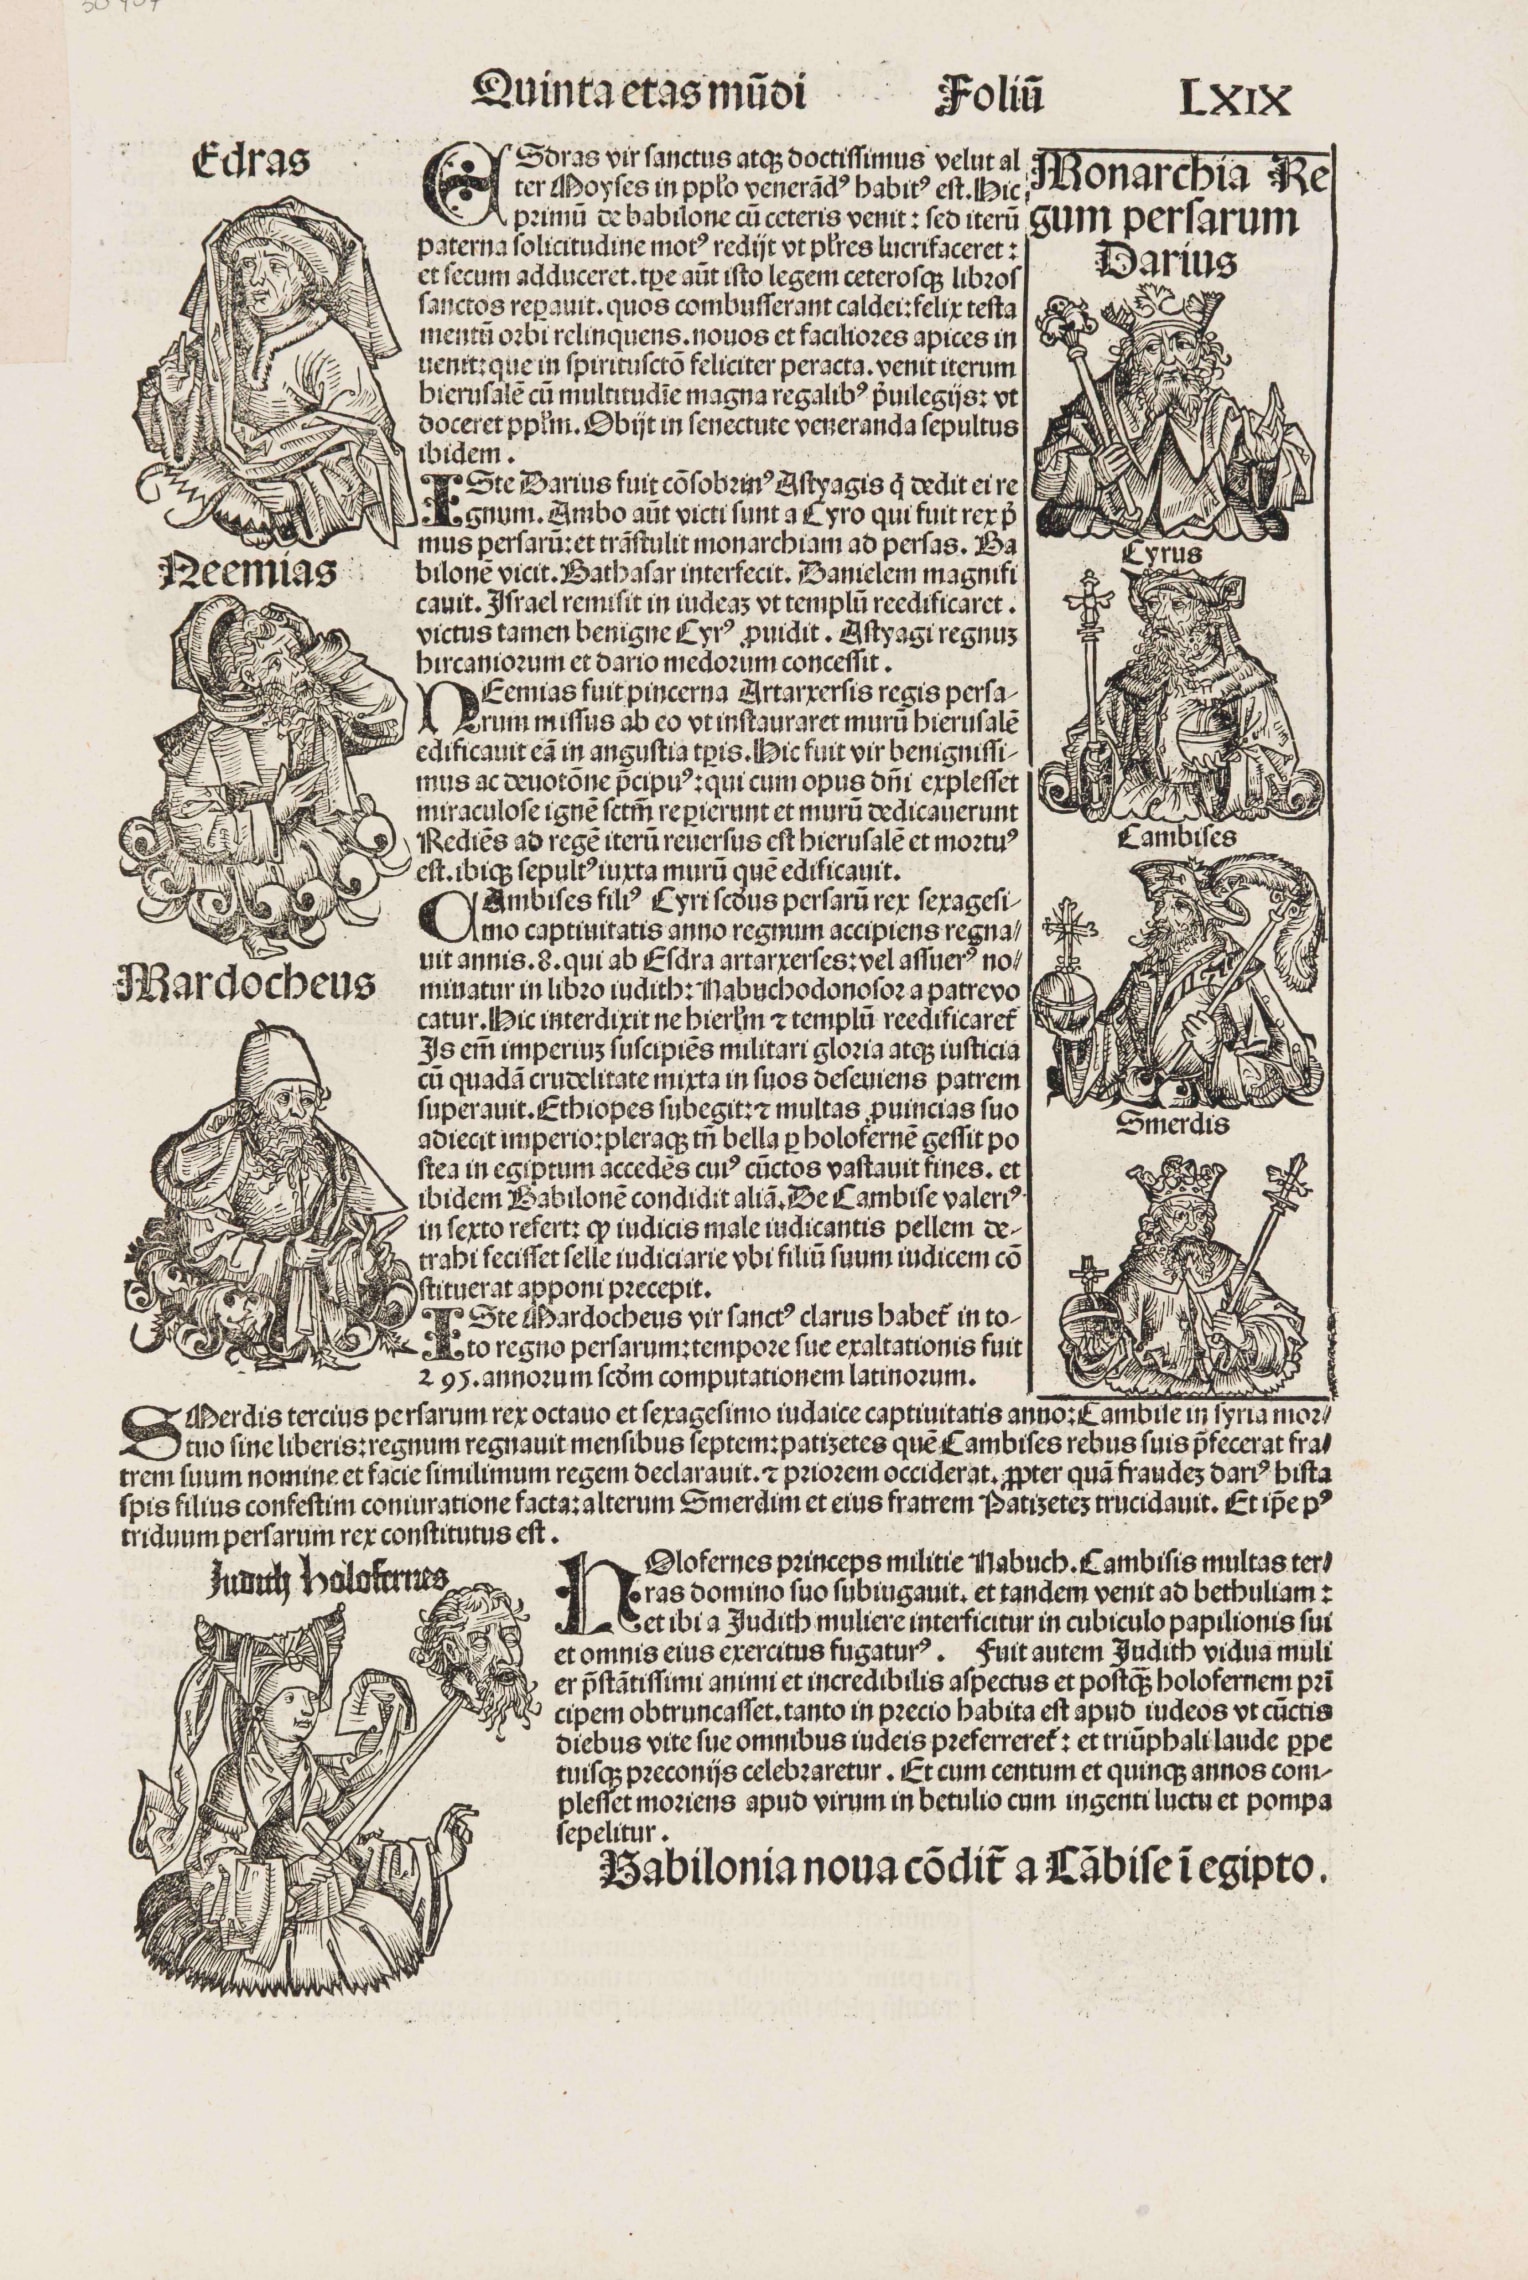 Quinta etas mūdi Foliū LXIX
Edras
ESdras vir sanctus atqꝫ doctissimus velut al
ter Moyses in ppl'o venerād⁹ habit⁹ est. Hic
primū de babilone cū ceteris venit: sed iterū
paterna solicitudine mot⁹ redijt vt pl'res lucrifaceret:
et secum adduceret. tꝑe aūt isto legem ceterosqꝫ libros
sanctos reꝑauit. quos combusserant caldei: felix testa
mentū orbi relinquens. nouos et faciliores apices in
uenit: que in spiritusctō feliciter peracta. venit iterum
hierusalē cū multitudīe magna regalib⁹ p̄uilegijs: vt
doceret ppl'm. Obijt in senectute veneranda sepultus
ibidem.
ISte Darius fuit cōsobrin⁹ Astyagis q̄ dedit ei re
gnum. Ambo aūt victi sunt a Cyro qui fuit rex p̄
mus persarū: et trāstulit monarchiam ad persas. Ba
bilonē vicit. Bathasar interfecit. Danielem magnifi
cauit. Israel remisit in iudeaꝫ vt templū reedificaret.
victus tamen benigne Cyr⁹ ꝓuidit. Astyagi regnuꝫ
hircaniorum et dario medorum concessit.
Neemias
NEemias fuit pincerna Artarxersis regis persa-
rum missus ab eo vt instauraret murū hierusalē
edificauit eā in angustia tꝑis. Hic fuit vir benignissi-
mus ac deuotōne p̄cipu⁹: qui cum opus dn̄i explesset
miraculose ignē sctm̄ reꝑierunt et murū dedicauerunt
Rediēs ad regē iterū reuersus est hierusalē et mortu⁹
est. ibiqꝫ sepult⁹ iuxta murū quē edificauit.
CAmbises fili⁹ Cyri scdus persarū rex sexagesi-
mo captiuitatis anno regnum accipiens regna/
uit annis. 8. qui ab Esdra artarxerses: vel assuer⁹ no/
minatur in libro iudith: Nabuchodonosor a patre vo
catur. Hic interdixit ne hierl'm ⁊ templū reedificaret̄
Is em̄ imperiuꝫ suscipiēs militari gloria atqꝫ iusticia
cū quadā crudelitate mixta in suos deseuiens patrem
superauit. Ethiopes subegit: ⁊ multas ꝓuincias suo
adiecit imperio: pleraqꝫ tn̄ bella ꝑ holofernē gessit po
stea in egiptum accedēs cui⁹ cūctos vastauit fines. et
ibidem Babilonē condidit aliā. De Cambise valeri⁹
in sexto refert: ꝙ iudicis male iudicantis pellem de-
trahi fecisset selle iudiciarie vbi filiū suum iudicem cō
stituerat apponi precepit.
Mardocheus
ISte Mardocheus vir sanct⁹ clarus habet̄ in to-
to regno persarum: tempore sue exaltationis fuit
295. annorum scdm computationem latinorum.
Monarchia Re
gum persarum
Darius
Cyrus
Cambises
Smerdis
SMerdis tercius persarum rex octauo et sexagesimo iudaice captiuitatis anno: Cambise in syria mor/
tuo sine liberis: regnum regnauit mensibus septem: patizetes quē Cambises rebus suis p̄fecerat fra/
trem suum nomine et facie similimum regem declarauit. ⁊ priorem occiderat. ꝓpter quā fraudeꝫ dari⁹ hista
spis filius confestim coniuratione facta: alterum Smerdim et eius fratrem Patizeteꝫ trucidauit. Et ip̄e p⁹
triduum persarum rex constitutus est.
Judith holofernes
HOlofernes princeps militie Nabuch. Cambisis multas ter/
ras domino suo subiugauit. et tandem venit ad bethuliam:
et ibi a Judith muliere interficitur in cubiculo papilionis sui
et omnis eius exercitus fugatur⁹. Fuit autem Judith vidua muli
er p̄stātissimi animi et incredibilis aspectus et postqꝫ holofernem prī
cipem obtruncasset. tanto in precio habita est apud iudeos vt cūctis
diebus vite sue omnibus iudeis preferreret̄: et triūphali laude ꝑpe
tuisqꝫ preconijs celebraretur. Et cum centum et quinqꝫ annos com-
plesset moriens apud virum in betulio cum ingenti luctu et pompa
sepelitur.
Babilonia noua cōdit̄ a Cābise ī egipto.